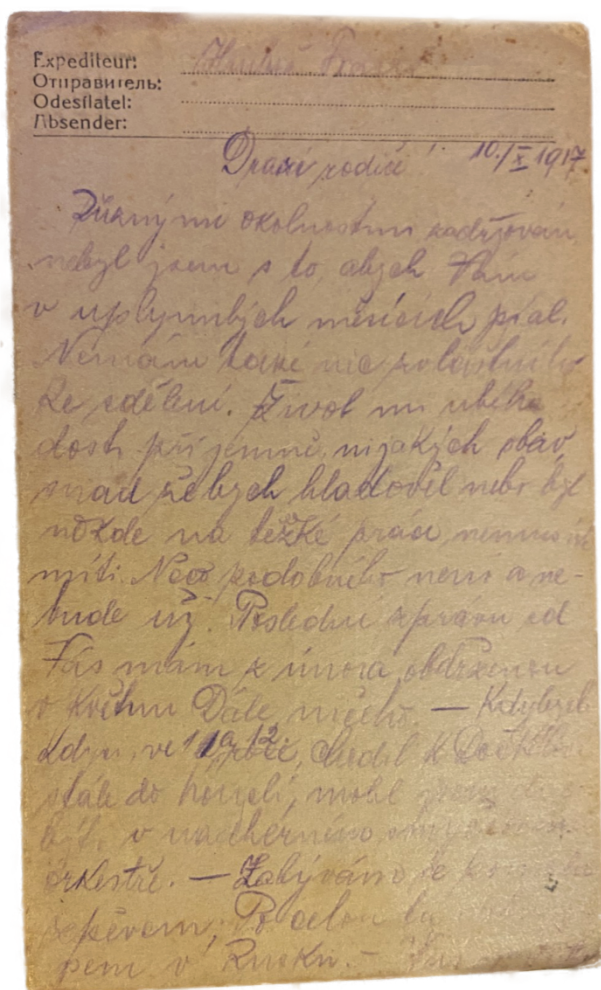 Expediteur:
Отправитель:
Odesílatel:
Absender:
Drazí rodiče! 10./X 1917
Různými okolnostmi zadržován
nebyl jsem s to abych Vám
v uplynulých měsících psal.
Nemám také nic zvláštního
ke sdělení. Život mi ubíhá
dosti příjemně, nijakých obav
snad že bych hladověl nebo byl
někde na těžké práci, nemusíte
míti. Něco podobného není a ne-
bude už. Poslední zprávu od
Vás mám z února, obdrženou
v květnu. Dále ničeho. — Kdybych
ve chodil k
stále do houslí, mohl
býti v nádherném
orkestře. — Zabývám se
zpěvem. Po celou
v Rusku. —